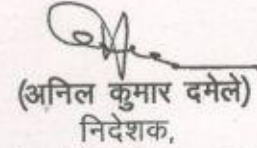 (अनिल कुमार दमेले)
निदेशक,